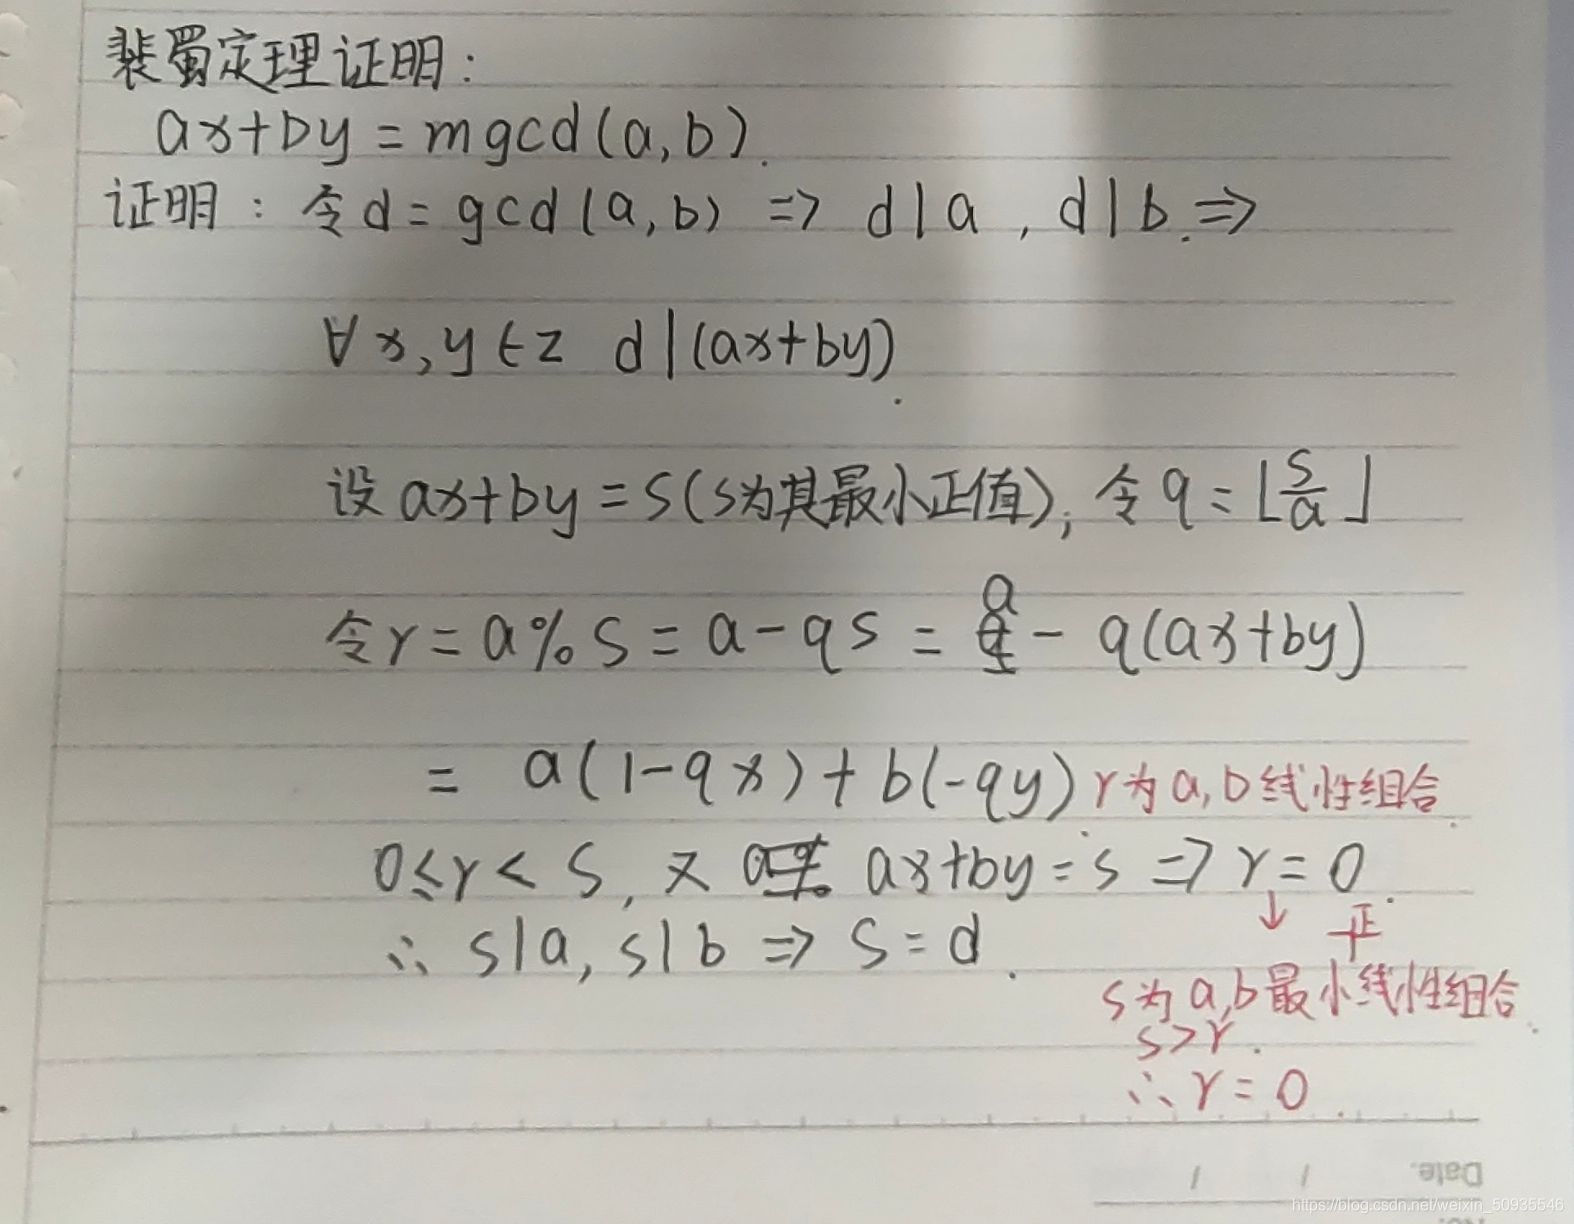 裴蜀定理证明：
ax+by = mgcd(a,b).
证明：令d = gcd(a,b) => d|a , d|b. =>
∀x,y∈Z d|(ax+by).
设ax+by = s(s为其最小正值), 令q = ⌊s/a⌋
令r = a%s = a-qs = a - q(ax+by)
= a(1-qx)+b(-qy) r为a,b线性组合.
0≤r<s, 又 ax+by=s => r=0.
↓ 正
∴ s|a, s|b => s=d.
s为a,b最小线性组合.
s>r.
∴ r=0.
Date.
https://blog.csdn.net/weixin_50935546